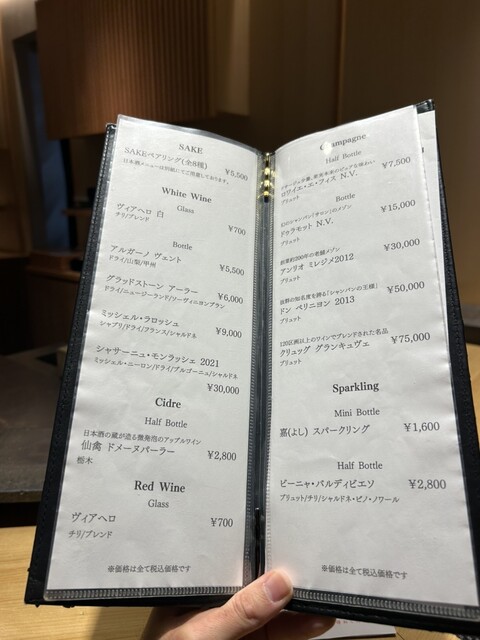 SAKE
SAKEペアリング(全8種) ¥5,500
日本酒メニューは別紙にてご用意しております。
White Wine
Glass
ヴィアヘロ 白 ¥700
チリ/ブレンド
Bottle
アルガーノ ヴェント ¥5,500
ドライ/山梨/甲州
グラッドストーン アーラー ¥6,000
ドライ/ニュージーランド/ソーヴィニヨンブラン
ミッシェル・ラロッシュ ¥9,000
シャブリ/ドライ/フランス/シャルドネ
シャサーニュ・モンラッシェ 2021
ミッシェル・ニーロン/ドライ/ブルゴーニュ/シャルドネ
¥30,000
Cidre
Half Bottle
日本酒の蔵が造る微発泡のアップルワイン
仙禽 ドメーヌパーラー ¥2,800
栃木
Red Wine
Glass
ヴィアヘロ ¥700
チリ/ブレンド
※価格は全て税込価格です
Champagne
Half Bottle
ロワイエ・エ・フィス N.V. ¥7,500
ブリュット
Bottle
幻のシャンパン「サロン」のメゾン
ドゥラモット N.V. ¥15,000
ブリュット
創業約200年の老舗メゾン
アンリオ ミレジメ2012 ¥30,000
ブリュット
抜群の知名度を誇る「シャンパンの王様」
ドン ペリニヨン 2013 ¥50,000
ブリュット
120区画以上のワインでブレンドされた名品
クリュッグ グランキュヴェ ¥75,000
ブリュット
Sparkling
Mini Bottle
嘉(よし) スパークリング ¥1,600
Half Bottle
ビーニャ・バルディビエソ ¥2,800
ブリュット/チリ/シャルドネ・ピノ・ノワール
※価格は全て税込価格です